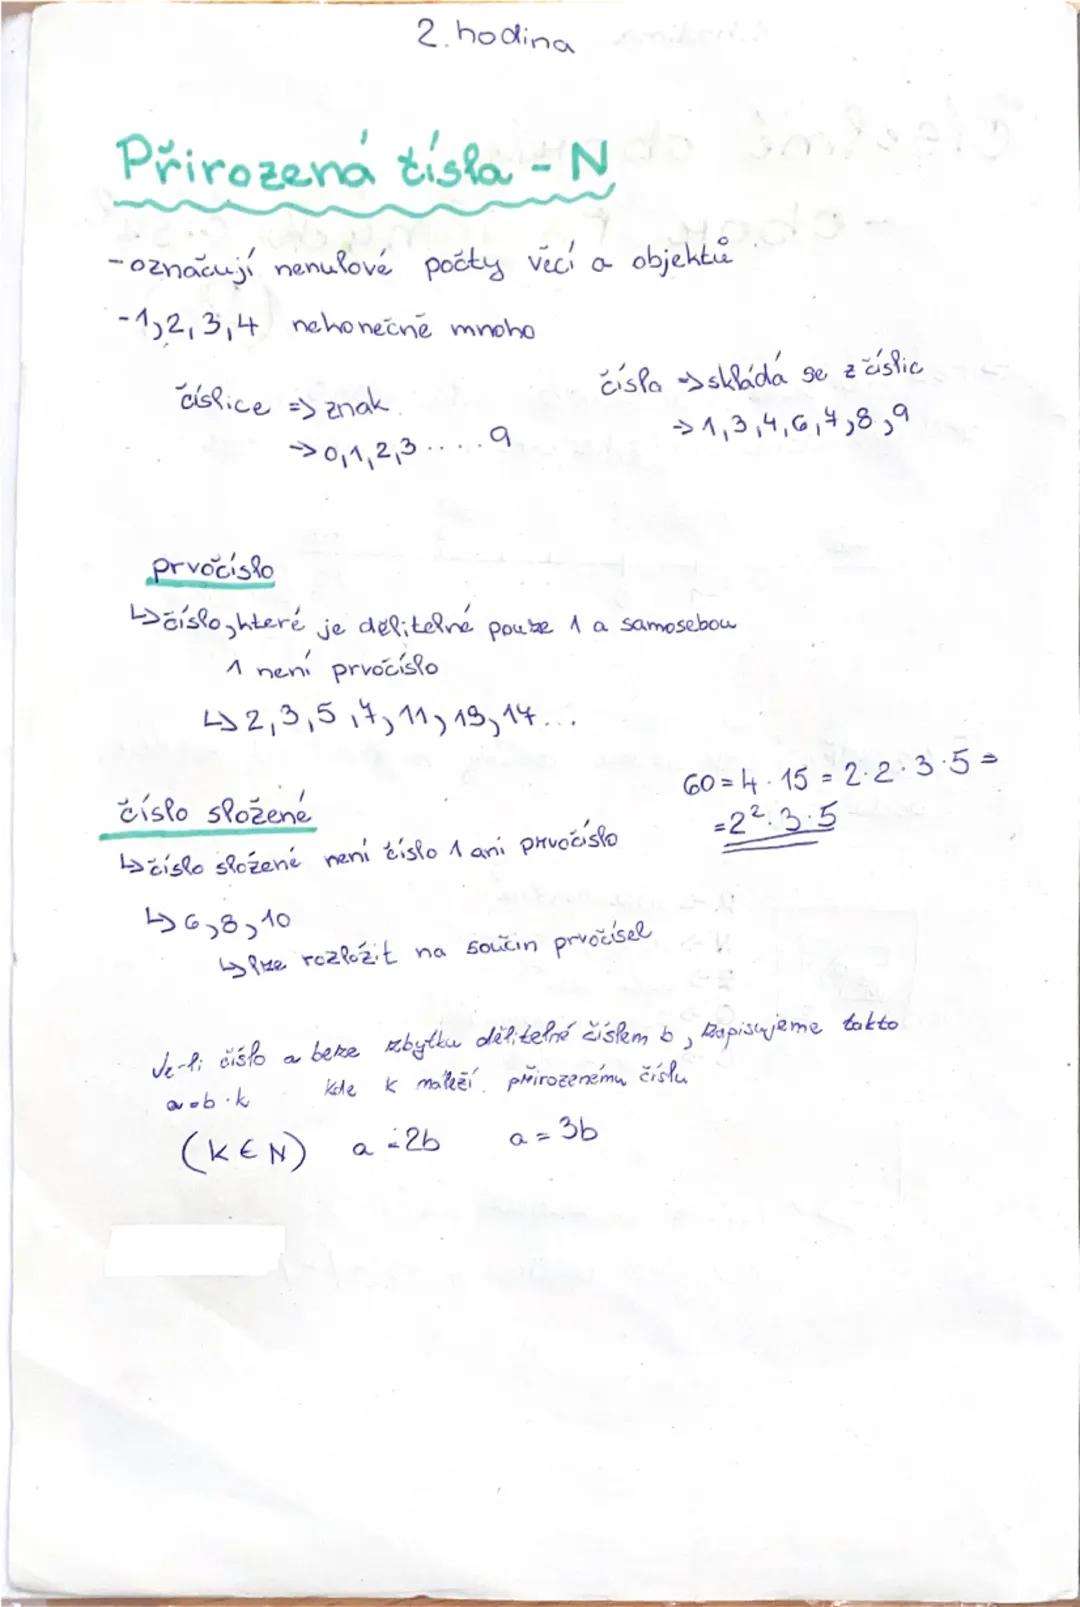 2. hodina
Přirozená čísla - N
- označují nenulové počty věcí a objektů
- 1, 2, 3, 4 nekonečně mnoho
číslice => znak
-> 0, 1, 2, 3 ..... 9
čísla => skládá se z číslic
-> 1, 3, 4, 6, 7, 8, 9
prvočíslo
↳ číslo, které je dělitelné pouze 1 a samosebou
1 není prvočíslo
↳ 2, 3, 5, 7, 11, 13, 17...
číslo složené
↳ číslo složené není číslo 1 ani prvočíslo
↳ 6, 8, 10
↳ lze rozložit na součin prvočísel
60 = 4 · 15 = 2 · 2 · 3 · 5 =
= 2² · 3 · 5
Je-li číslo a beze zbytku dělitelné číslem b, zapisujeme takto
a = b · k kde k náleží přirozenému číslu
(k ∈ N) a = 2b a = 3b